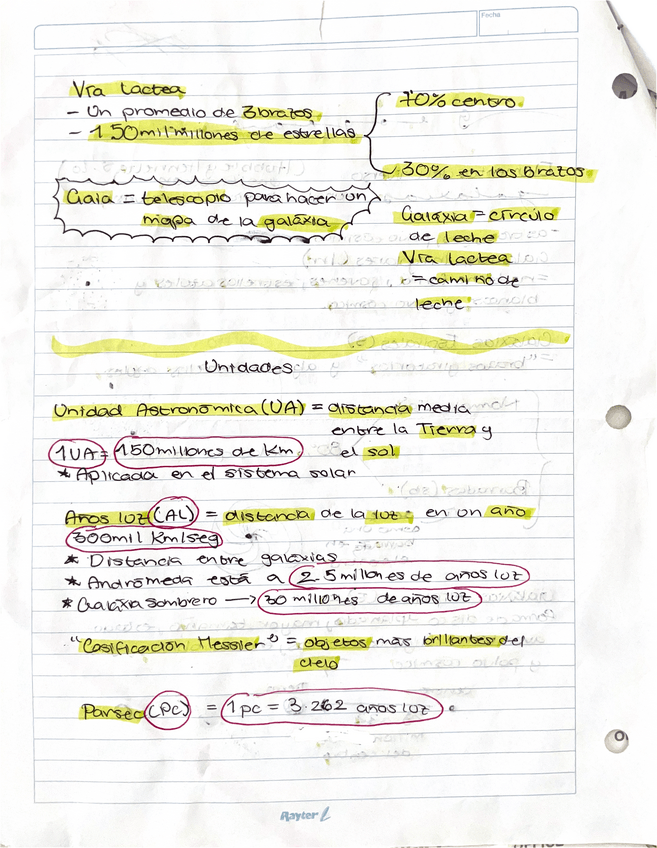 Fecha
Vía Lactea
- Un promedio de 3 brazos.
- 150 mil millones de estrellas
70% centro
30% en los brazos
Gaia = telescopio para hacer un
mapa de la galáxia
Galáxia = círculo
de leche
Vía lactea
= camino de
leche
Unidades
Unidad Astronómica (UA) = distancia media
entre la Tierra y
1UA = 150 millones de Km el sol
* Aplicada en el sistema solar
Años luz (AL) = distancia de la luz en un año
300mil Km/seg
* Distancia entre galáxias
* Andrómeda está a 2.5 millones de años luz
* Galáxia Sombrero → 30 millones de años luz
"Casificación Messier" = objetos más brillantes del
cielo
Parsec (Pc) = 1 pc = 3.262 años luz
Rayter